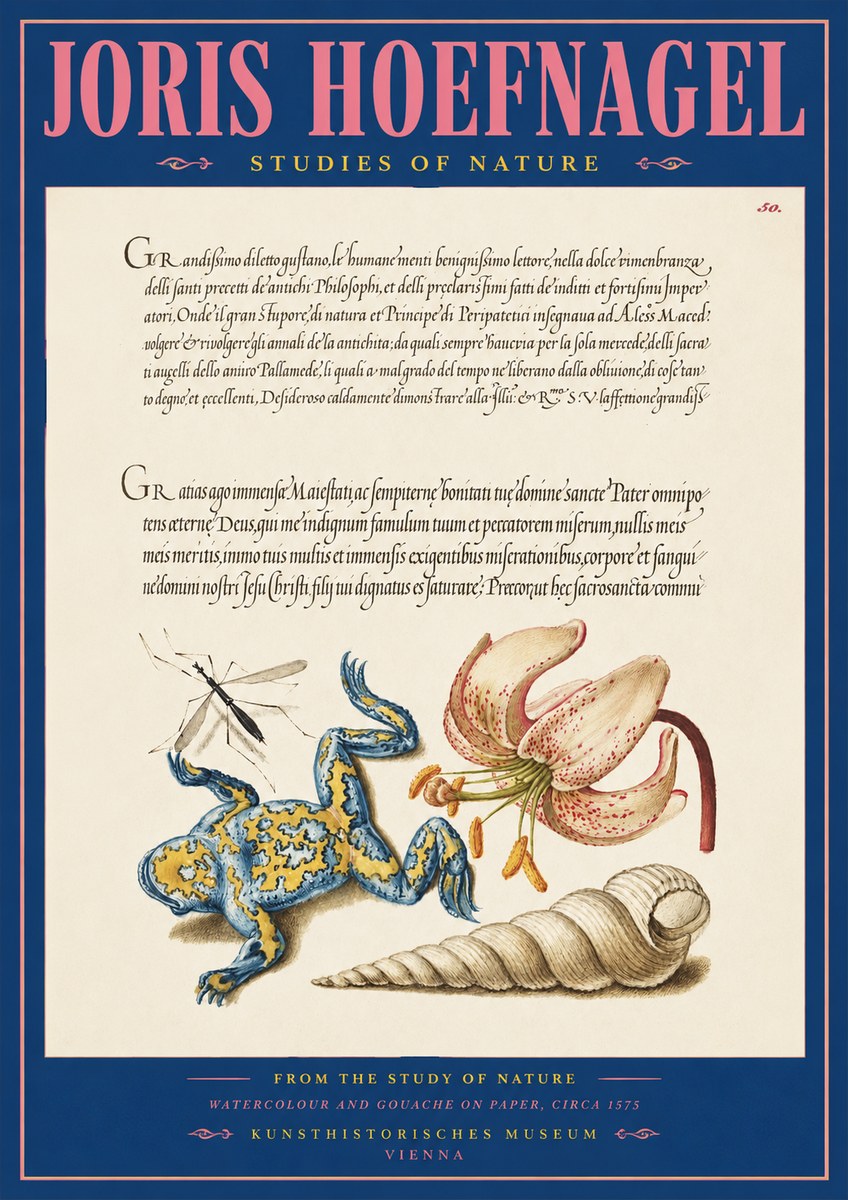 JORIS HOEFNAGEL
STUDIES OF NATURE
50.
GRandißimo diletto gustano, le humane menti benignißimo lettore, nella dolce rimenbranza,
delli santi precetti de antichi Philosophi, et delli pręclarissimi fatti de inditti et fortisimi Imper
atori, Onde il gran Stupore, di natura et Principe di Peripatetici insegnaua ad Aless Maced:
volgere & rivolgere gli annali de la antichita; da quali sempre hauria per la sola mercede, delli sacra
ti augelli dello Pallamede, li quali a mal grado del tempo ne liberano dalla obliuione, di cose tan
to degne, et eccellenti, Desideroso caldamente dimonstrare alla Illu: & Rmo S. V. laffettione grandiss
GRatias ago immensæ Maiestati, ac sempiternę bonitati tuę domine sancte Pater omnipo
tens æterne Deus, qui me indignum famulum tuum et peccatorem miserum, nullis meis
meis meritis, immo tuis multis et immensis exigentibus miserationibus, corpore et sangui
ne domini nostri Jesu Christi, filij tui dignatus es saturare; Precor, ut hęc sacrosancta commu
FROM THE STUDY OF NATURE
WATERCOLOUR AND GOUACHE ON PAPER, CIRCA 1575
KUNSTHISTORISCHES MUSEUM
VIENNA